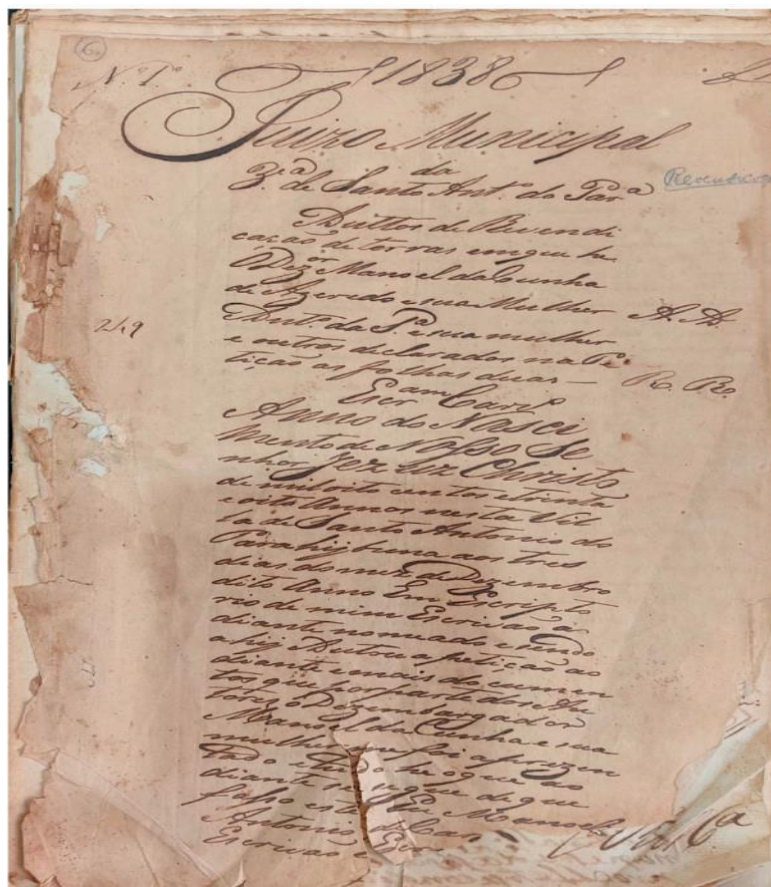 6
N. 1º 1838
Juizo Municipal
da
Vª de Santo Antº do Parª
Auttos de Revendi
cação de terras em que he
Dezor Manoel da Cunha
de Azeredo e sua Mulher A. A.
249
Antº da Sª e sua mulher
e outros declarados na Pe
tição as folhas duas — R. R.
Escram
Anno do Nasci
mento de Nosso Se
nhor Jezus Christo
de mil oito centos e trinta
e oito Annos nesta Vil
la de Santo Antonio do
Parahybuna aos tres
dias do mez de Dezembro
dito Anno Em Escripto
rio de mim Escrivão a
diante nomeado e sendo
ahy Autuo a petição ao
diante e mais documen
tos que por parte dos Au
tores o Dezembargador
Manoel da Cunha e sua
mulher me foi aprezen
tado e tudo he o que ao
diante se segue de que
faço este Manoel
Antonio
Escrivão